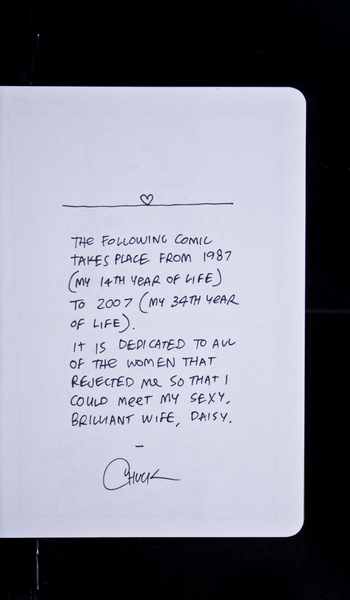 THE FOLLOWING COMIC
TAKES PLACE FROM 1987
(MY 14TH YEAR OF LIFE)
TO 2007 (MY 34TH YEAR
OF LIFE).
IT IS DEDICATED TO ALL
OF THE WOMEN THAT
REJECTED ME SO THAT I
COULD MEET MY SEXY,
BRILLIANT WIFE, DAISY.
–
CHUCK